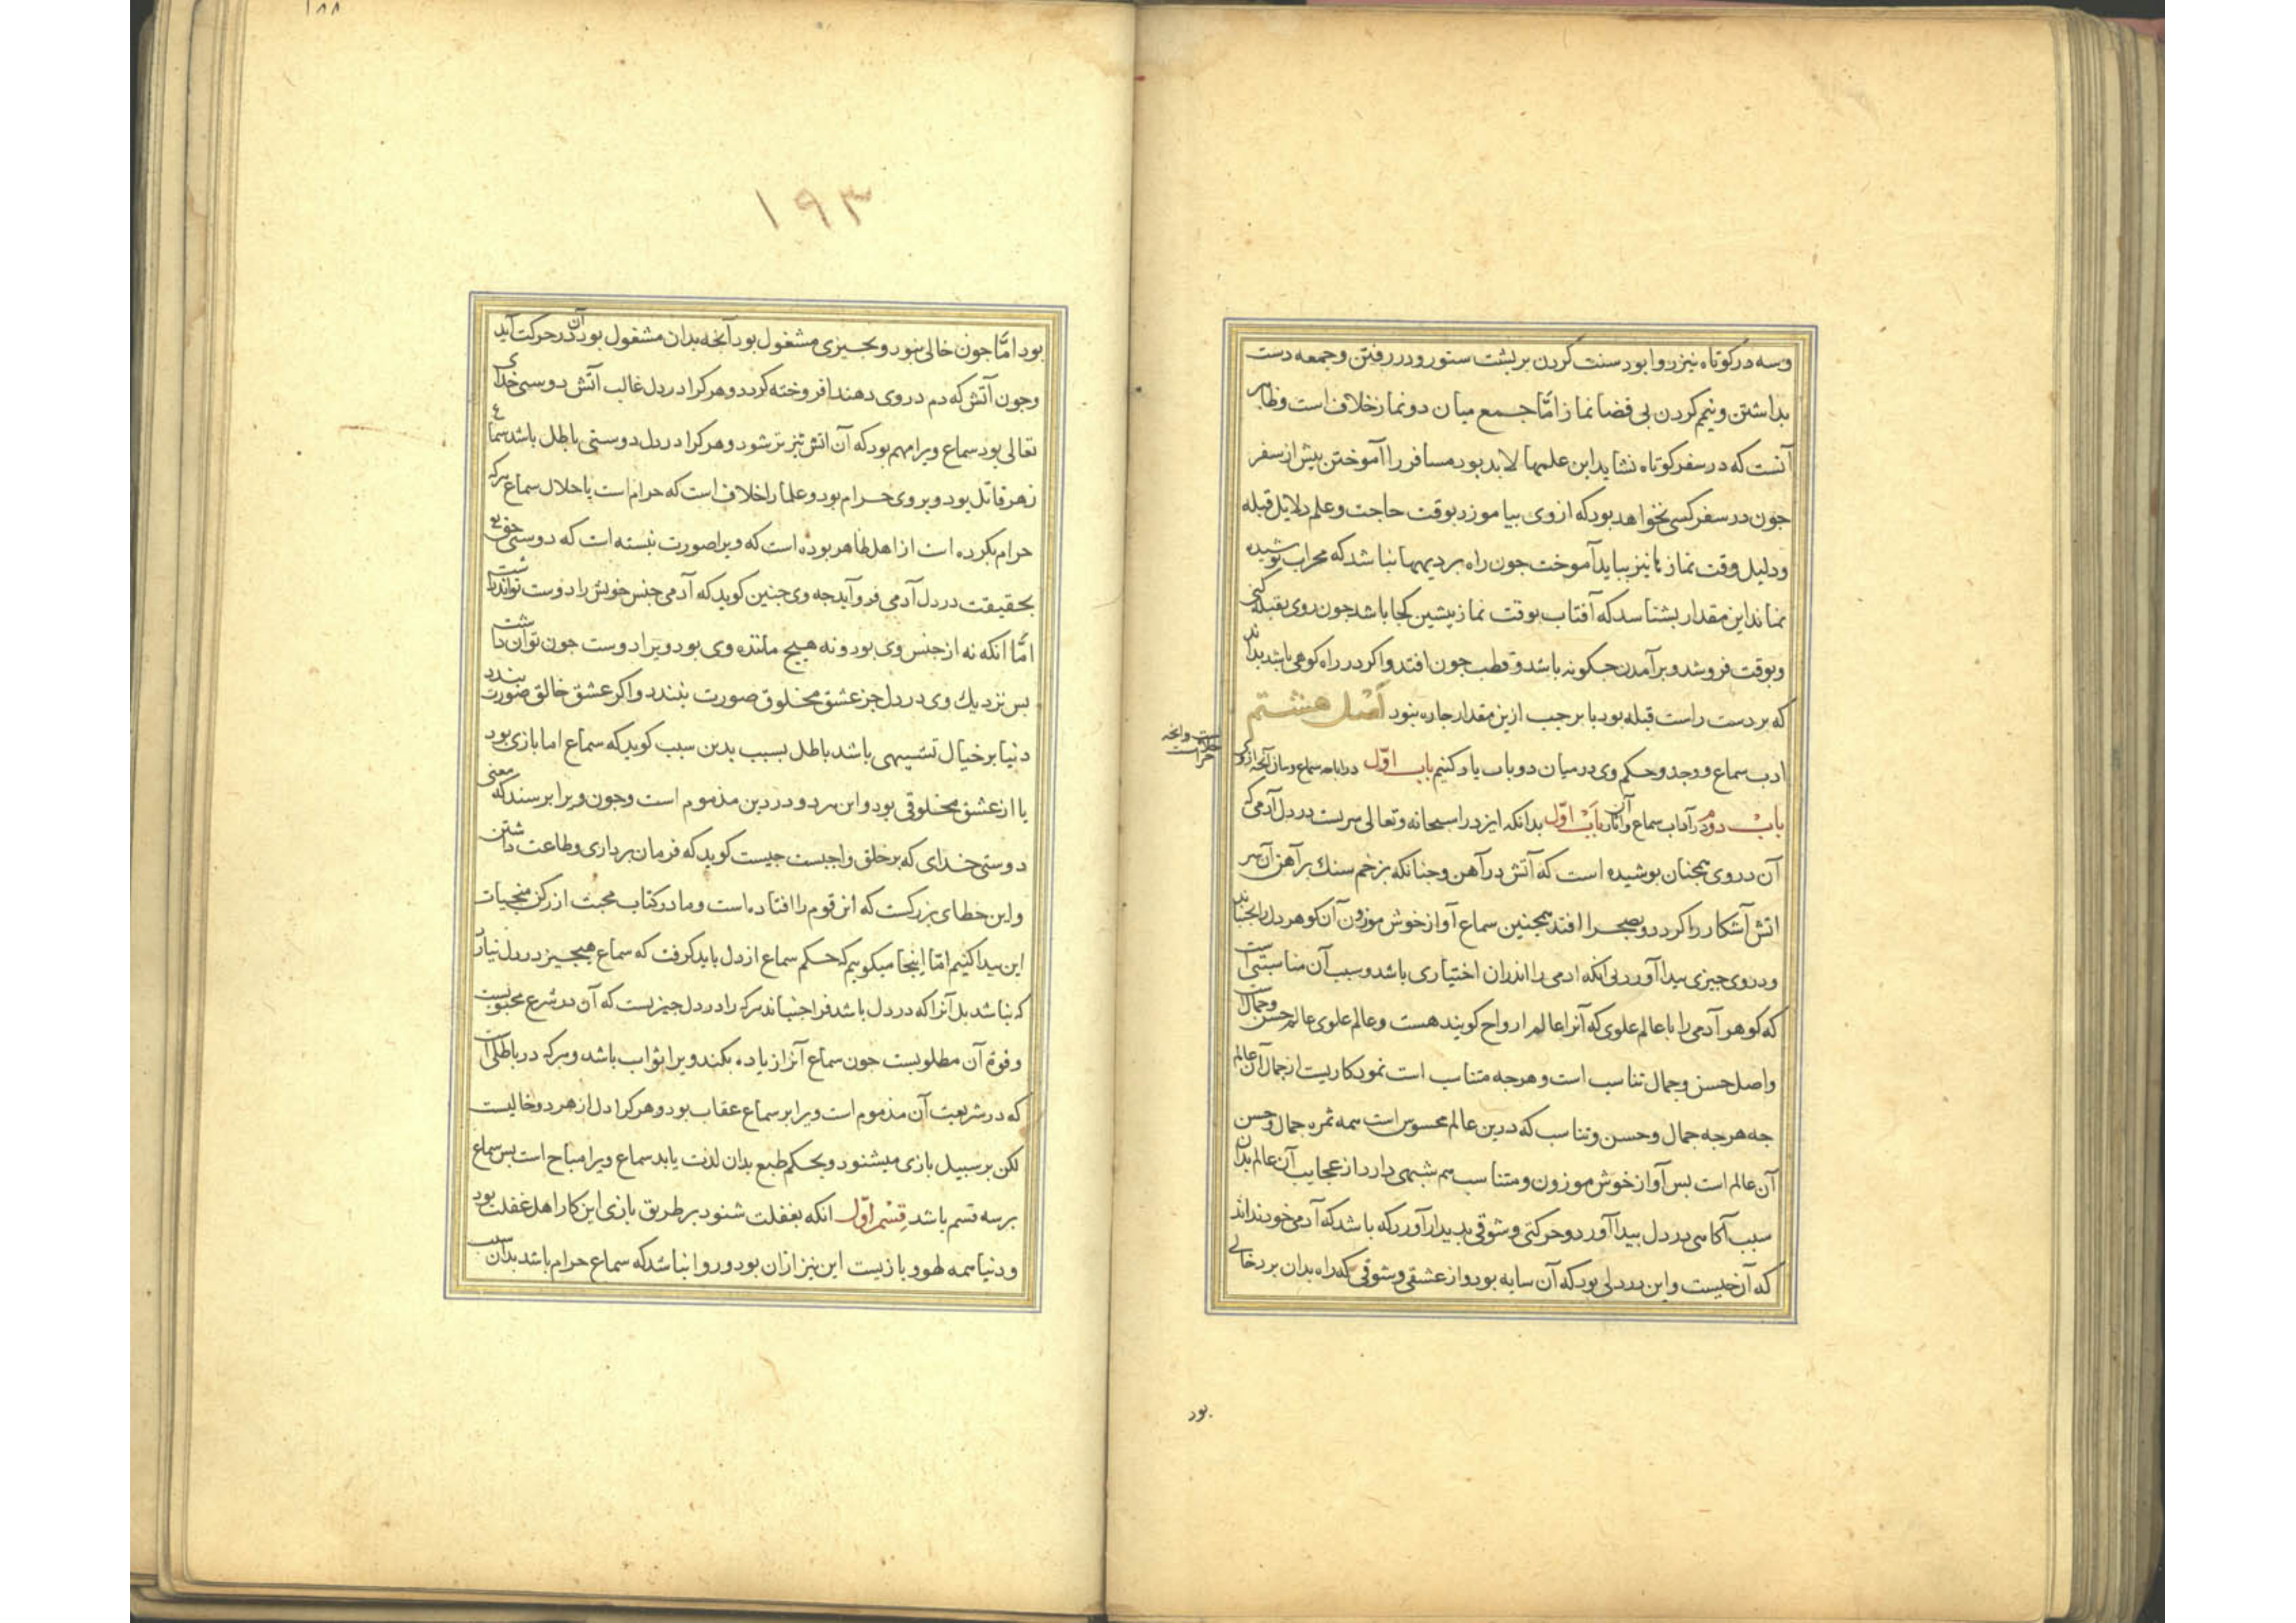 وسه در کوتاه نیز روا بود سنت کردن بر پشت ستور و در رفتن و جمعه دست
بداشتن و تیمم کردن بی قضا نماز امّا جمع میان دو نماز خلاف است و ظاهر
آنست که در سفر کوتاه نشاید این علمها لابد بود مسافر را آموختن پیش از سفر
جون در سفر کسی نخواهد بود که از وی بیاموزد بوقت حاجت و علم دلایل قبله
و دلیل وقت نماز ها نیز بباید آموخت جون راه بر دیهها نباشد که محراب پوشیده
نماند این مقدار بشناسد که آفتاب بوقت نماز پیشین کجا باشد جون روی بقبله کنی
و بوقت فروشد و برآمدن جکونه باشد و قطب جون افتد و اکر در راه کوهی باشد بداند
که بر دست راست قبله بود یا بر جب ازین مقدار جاره نبود اَصْل هشتم
ادب سماع و وجد و حکم وی در میان دو باب یاد کنیم باب اوّل در اباحه سماع و بیان آنجه ازوی
حلالست وانجه حرامست
باب دوم در آداب سماع و آثار آن باب اوّل بدانکه ایزد را سبحانه و تعالی سریست در دل آدمی که
آن در وی همجنان بوشیده است که آتش در آهن و جنانکه بزخم سنك بر آهن آن سر
اتش آشکارا کردد و بصحرا افتد همجنین سماع آواز خوش موزون آن کوهر دل را بجنباند
و در وی جیزی بیدا آورد بی انکه ادمی را اندران اختیاری باشد و سبب آن مناسبتی است
که کوهر آدمی را با عالم علوی که آنرا عالم ارواح کویند هست و عالم علوی عالم حسن و جمال
و اصل حسن و جمال تناسب است و هرجه متناسب است نمودکاریست از جمال آن عالم
جه هرجه جمال و حسن و تناسب که درین عالم محسوس است همه ثمره جمال و حسن
آن عالم است بس آواز خوش موزون و متناسب هم شبهی دارد از عجایب آن عالم بدان
سبب آکاهی در دل بیدا آورد و حرکتی و شوقی بدیدار آورد که باشد که آدمی خود نداند
که آن جیست و این در دلی بود که آن ساده بود و از عشقی و شوقی که راه بدان برد خالی
بود
۱۸۸
۱۹۳
بود امّا جون خالی نبود و بجیزی مشغول بود آنجه بدان مشغول بود آن در حرکت آید
و جون آتش که دم در وی دهند افروخته کردد و هر کرا در دل غالب آتش دوستی خدای
تعالی بود سماع ویرا مهم بود که آن اتش تیزتر شود و هر کرا در دل دوستی باطل باشد سماع
زهر قاتل بود و بر وی حرام بود و علما را خلاف است که حرام است یا حلال سماع هرکه
حرام بکرده است از اهل ظاهر بوده است که ویرا صورت نبسته است که دوستی حق تع
بحقیقت در دل آدمی فرو آید جه وی جنین کوید که آدمی جنس خویش را دوست تواند داشت
امّا انکه نه از جنس وی بود و نه هیچ مانند وی بود ویرا دوست جون توان داشت
بس نزدیك وی در دل جز عشق مخلوق صورت نبندد و اکر عشق خالق صورت بندد
دنیا بر خیال تشبیهی باشد باطل بسبب بدین سبب کوید که سماع اما بازی بود
یا از عشق مخلوقی بود و این هر دو در دین مذموم است و جون ویرا برسند که معنی
دوستی خدای که بر خلق واجبست جیست کوید که فرمان برداری و طاعت داشتن
و این خطای بزرکست که این قوم را افتاده است و ما در کتاب محبت از رکن منجیات
این بیدا کنیم امّا اینجا میکوییم که حکم سماع از دل باید کرفت که سماع هیچ جیز در دل نیارد
که نباشد بل آنرا که در دل باشد فرا جنباند هرکه را در دل جیزیست که آن در شرع محبوبست
و قوة آن مطلوبست جون سماع آنرا زیاده بکند ویرا ثواب باشد و هرکه در باطلی است
که در شریعت آن مذموم است ویرا بر سماع عقاب بود و هر کرا دل از هر دو خالیست
لکن بر سبیل بازی میشنود و بحکم طبع بدان لذت یابد سماع ویرا مباح است بس سماع
بر سه قسم باشد قِسْم اوّل انکه بغفلت شنود بر طریق بازی این کار اهل غفلت بود
و دنیا همه لهو و بازیست این نیز ازان بود و روا نباشد که سماع حرام باشد بدان سبب